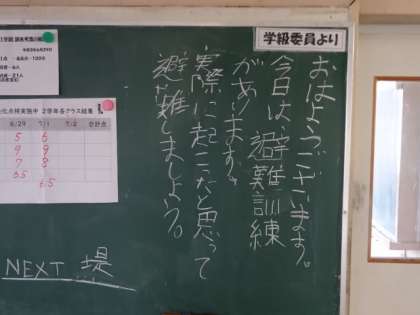 学級委員より
おはようございます。
今日は、避難訓練
があります。
実際に起こったと思って
避難しましょう。
NEXT 堤
2学年各クラス結果
6/29 7/1 7/2 合計点
5 6
9 9
7 8
6.5
6.5